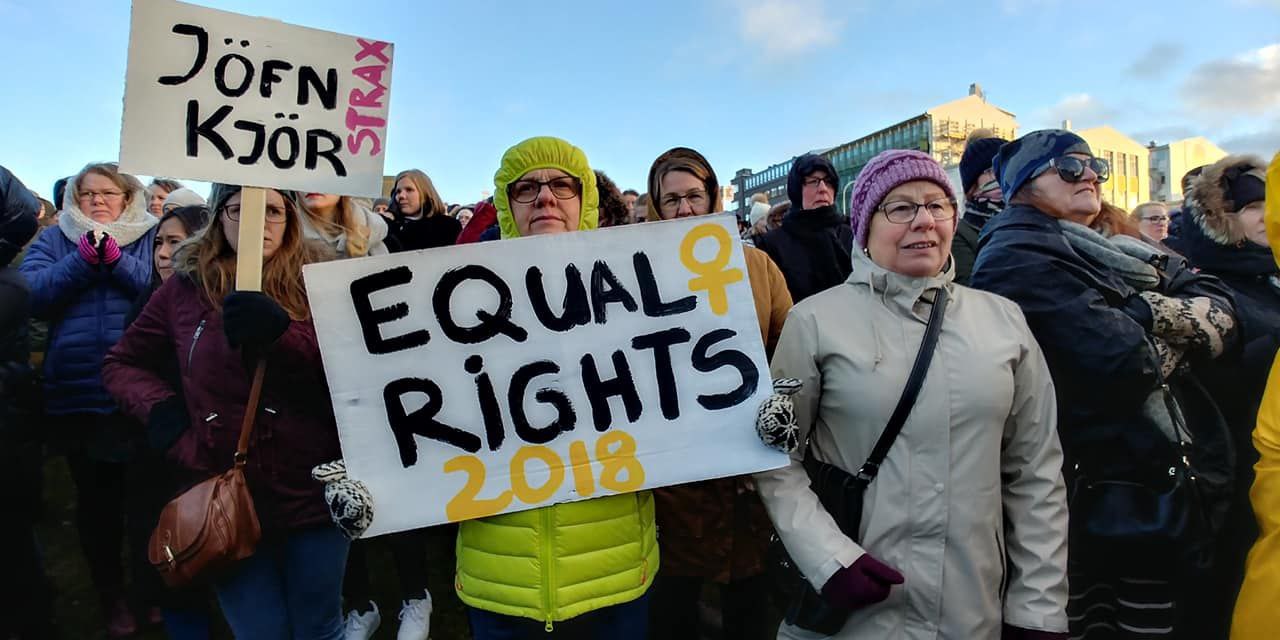 JÖFN
KJÖR
STRAX
EQUAL
RiGHTS
2018